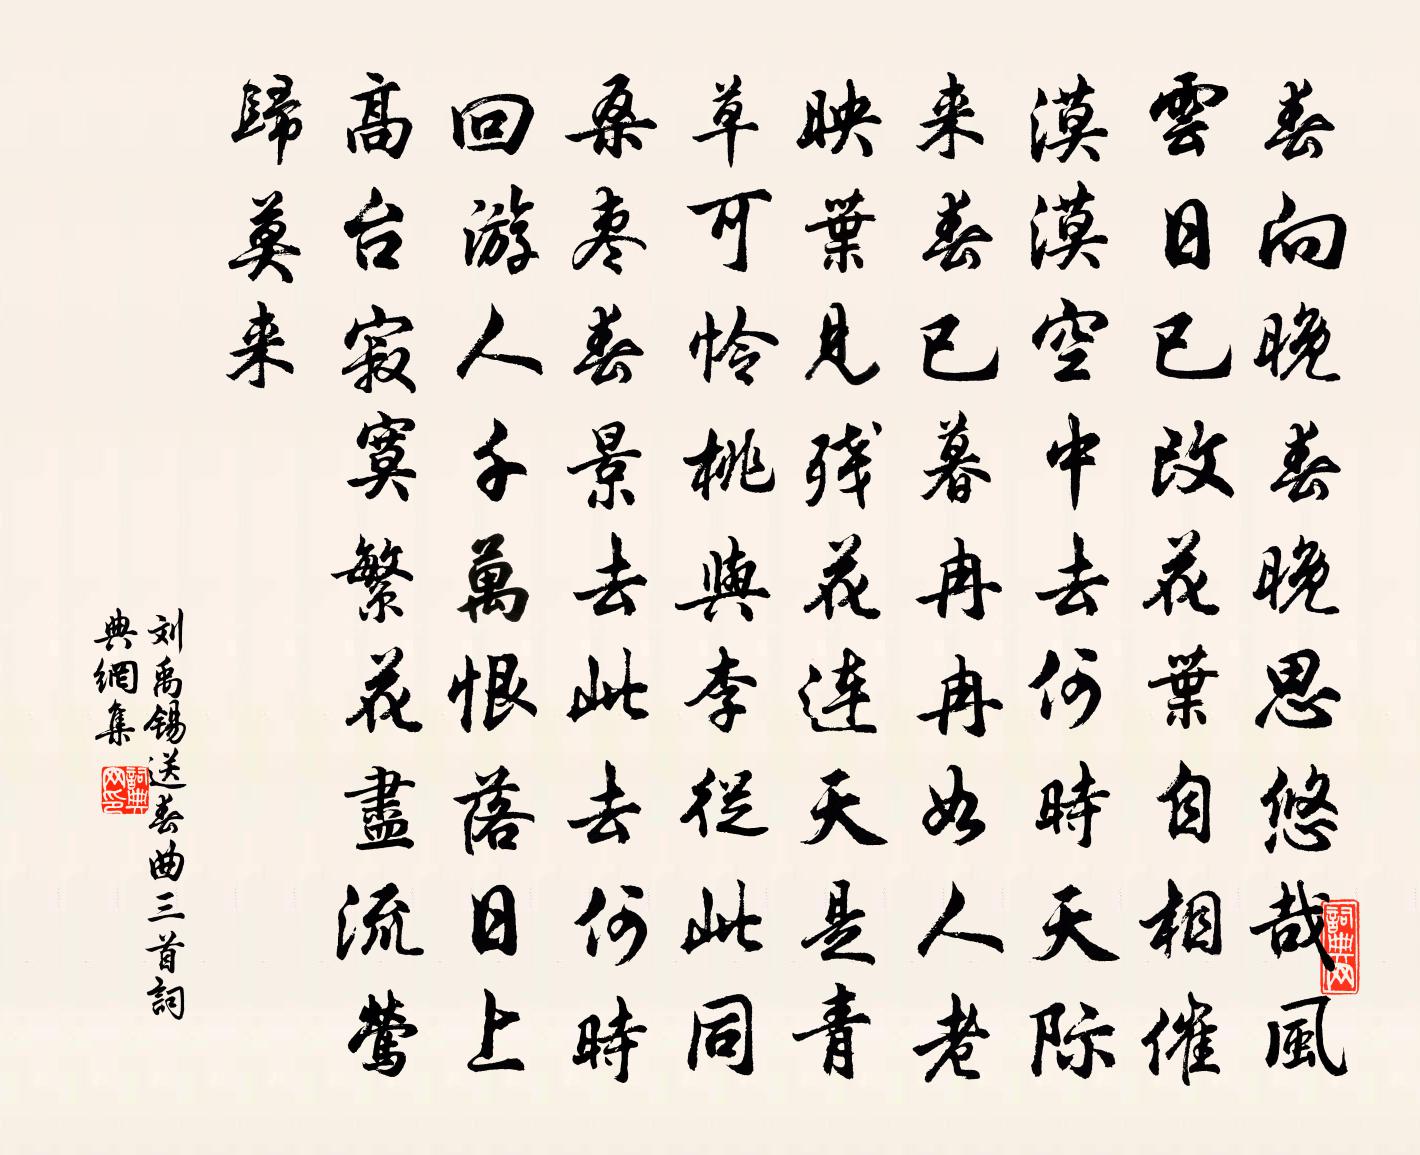 春向晚春晚思悠哉風
雲日已改花葉自相催
漠漠空中去何時天际
来春已暮冉冉如人老
映葉見残花連天是青
草可怜桃與李從此同
桑枣春景去此去何時
回游人千萬恨落日上
高台寂寞繁花盡流莺
歸莫来
刘禹锡送春曲三首詞
典網集
詞典网
詞典网印